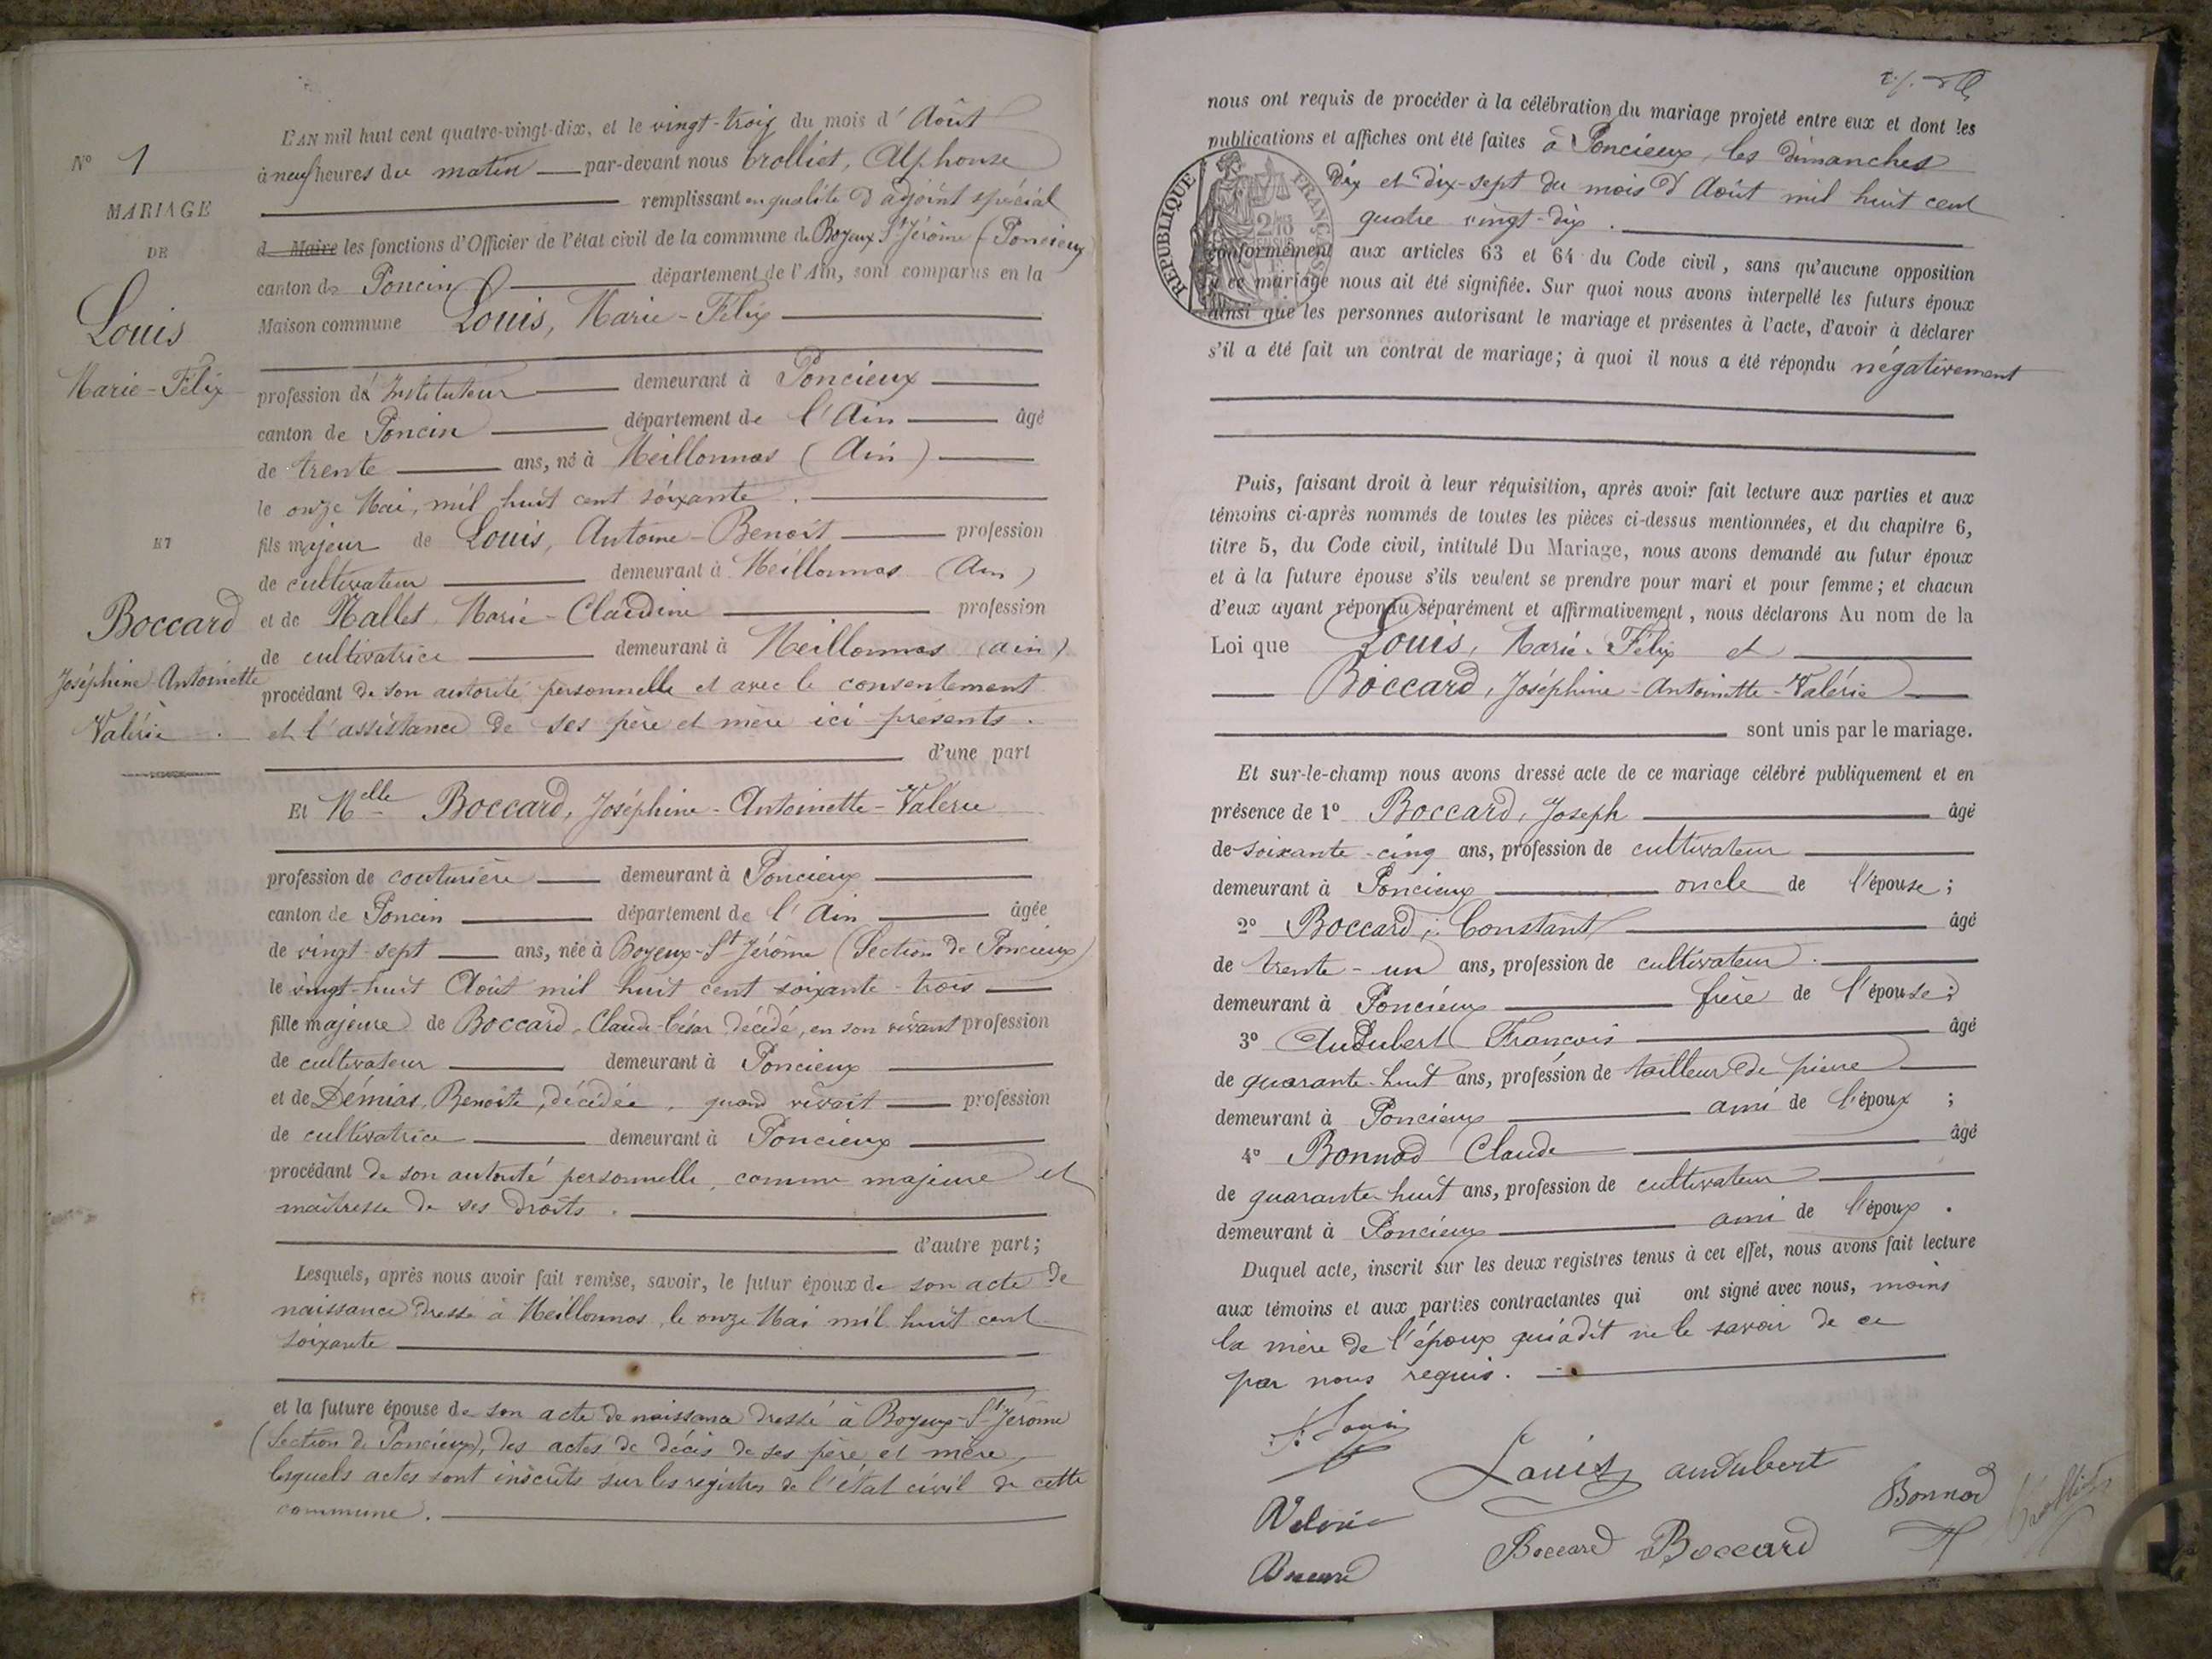 N° 1
MARIAGE
DE
Louis
Marie-Félix
ET
Boccard
Joséphine Antoinette
Valérie.
L'AN mil huit cent quatre-vingt-dix, et le vingt-trois du mois d'Août
à neuf heures du matin par-devant nous Crolliet, Alphonse
remplissant en qualité d'adjoint spécial
d Maire les fonctions d'Officier de l'état civil de la commune de Boyeux St Jérôme (Poncieux
canton de Poncin département de l'Ain, sont comparus en la
Maison commune Louis, Marie-Félix
profession d'Instituteur demeurant à Poncieux
canton de Poncin département de l'Ain âgé
de trente ans, né à Meillonnas (Ain)
le onze Mai, mil huit cent soixante.
fils majeur de Louis, Antoine-Benoit profession
de cultivateur demeurant à Meillonnas (Ain)
et de Mallet Marie-Claudine profession
de cultivatrice demeurant à Meillonnas (ain)
procédant de son autorité personnelle et avec le consentement
et l'assistance de ses père et mère ici présents.
d'une part
Et Melle Boccard, Joséphine-Antoinette-Valérie
profession de couturière demeurant à Poncieux
canton de Poncin département de l'Ain âgée
de vingt-sept ans, née à Boyeux-St-Jérôme (Section de Poncieux)
le vingt-huit Août mil huit cent soixante-trois
fille majeure de Boccard, Claude-César décédé, en son vivant profession
de cultivateur demeurant à Poncieux
et de Démias, Benoite, décédée, quand vivait profession
de cultivatrice demeurant à Poncieux
procédant de son autorité personnelle, comme majeure et
maîtresse de ses droits.
d'autre part;
Lesquels, après nous avoir fait remise, savoir, le futur époux de son acte de
naissance dressé à Meillonnas, le onze Mai mil huit cent
soixante
et la future épouse de son acte de naissance dressé à Boyeux-St-Jérôme
(Section de Poncieux), des actes de décès de ses père et mère,
lesquels actes sont inscrits sur les registres de l'état civil de cette
commune.
nous ont requis de procéder à la célébration du mariage projeté entre eux et dont les
publications et affiches ont été faites à Poncieux, les dimanches
dix et dix-sept du mois d'Août mil huit cent
quatre vingt-dix.
RÉPUBLIQUE FRANÇAISE
conformément aux articles 63 et 64 du Code civil, sans qu'aucune opposition
à ce mariage nous ait été signifiée. Sur quoi nous avons interpellé les futurs époux
ainsi que les personnes autorisant le mariage et présentes à l'acte, d'avoir à déclarer
s'il a été fait un contrat de mariage; à quoi il nous a été répondu négativement
Puis, faisant droit à leur réquisition, après avoir fait lecture aux parties et aux
témoins ci-après nommés de toutes les pièces ci-dessus mentionnées, et du chapitre 6,
titre 5, du Code civil, intitulé Du Mariage, nous avons demandé au futur époux
et à la future épouse s'ils veulent se prendre pour mari et pour femme; et chacun
d'eux ayant répondu séparément et affirmativement, nous déclarons Au nom de la
Loi que Louis, Marie-Félix et
Boccard, Joséphine-Antoinette-Valérie
sont unis par le mariage.
Et sur-le-champ nous avons dressé acte de ce mariage célébré publiquement et en
présence de 1° Boccard, Joseph âgé
de soixante-cinq ans, profession de cultivateur
demeurant à Poncieux oncle de l'épouse;
2° Boccard, Constant âgé
de trente-un ans, profession de cultivateur.
demeurant à Poncieux frère de l'épouse;
3° Audubert François âgé
de quarante-huit ans, profession de tailleur de pierre
demeurant à Poncieux ami de l'époux;
4° Bonnod Claude âgé
de quarante-huit ans, profession de cultivateur
demeurant à Poncieux ami de l'époux.
Duquel acte, inscrit sur les deux registres tenus à cet effet, nous avons fait lecture
aux témoins et aux parties contractantes qui ont signé avec nous, moins
la mère de l'époux qui a dit ne le savoir de ce
par nous requis.
F. Louis
Louis audubert
Bonnod Crolliet
Valérie
Boccard Boccard
Boccard